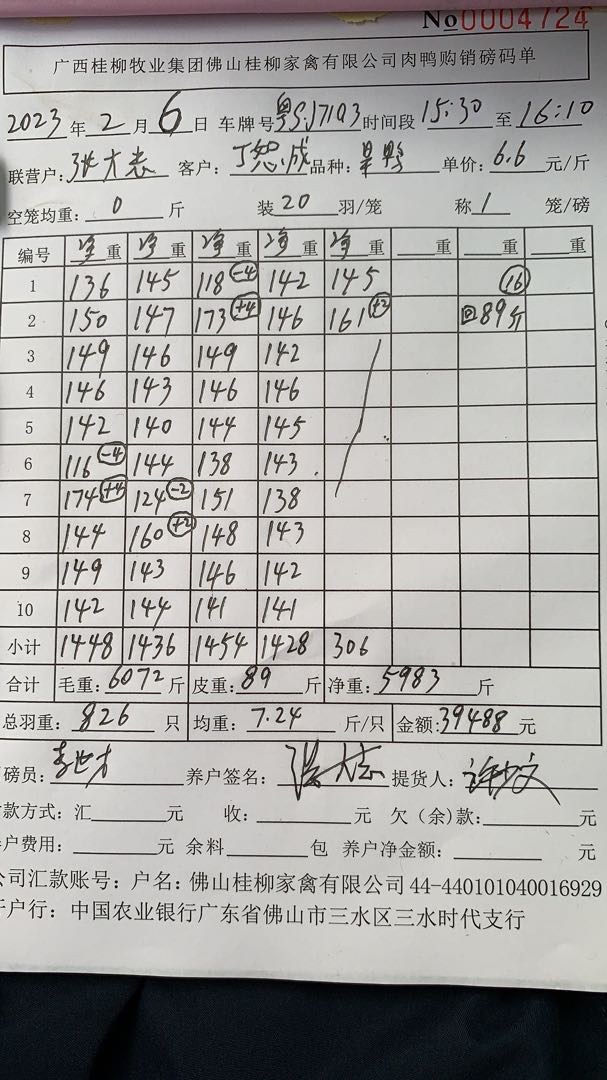 No0004724
广西桂柳牧业集团佛山桂柳家禽有限公司肉鸭购销磅码单
2023年2月6日 车牌号粤SJ71Q3时间段15:30至16:10
联营户:张大志 客户: 品种: 单价:6.6元/斤
空笼均重:0斤 装20羽/笼 称1笼/磅
编号 净重 净重 净重 净重 净重 重 重 重
1 136 145 118(-4) 142 145 (16)
2 150 147 173(+4) 146 161(+2) 回89斤
3 149 146 149 142
4 146 143 146 146
5 142 140 144 145
6 116(-4) 144 138 143.
7 174(+4) 124(-2) 151 138
8 144 160(+2) 148 143
9 149 143 146 142
10 142 144 141 141
小计 1448 1436 1454 1428 306
合计 毛重:6072斤 皮重:89斤 净重:5983斤
总羽重:826只 均重:7.24斤/只 金额:39488元
磅员:李世才 养户签名:张大志 提货人:
款方式:汇 元 收: 元 欠(余)款: 元
户费用: 元 余料 包 养户净金额: 元
公司汇款账号:户名:佛山桂柳家禽有限公司44-440101040016929
开户行:中国农业银行广东省佛山市三水区三水时代支行